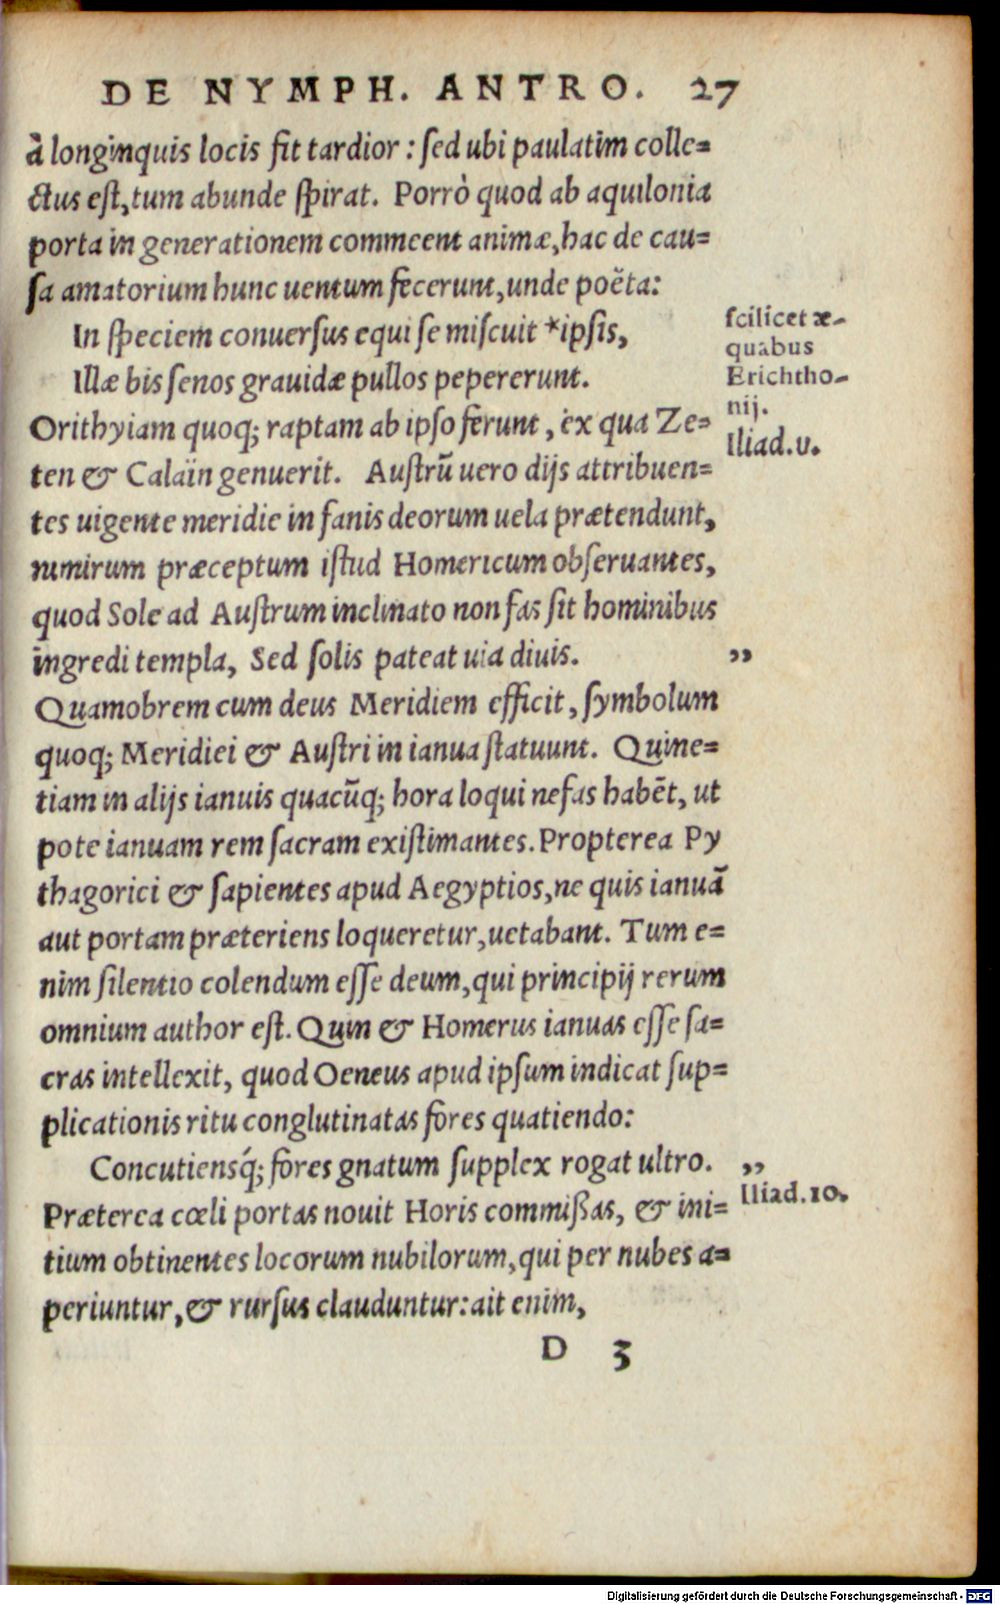 DE NYMPH. ANTRO. 27
à longinquis locis fit tardior : sed ubi paulatim colle-
ctus est, tum abunde spirat. Porrò quod ab aquilonia
porta in generationem commeent animæ, hac de cau-
sa amatorium hunc uentum fecerunt, unde poëta:
In speciem conuersus equi se miscuit *ipsis,
scilicet æ-
quabus
Erichtho-
nij.
Iliad.υ.
Illæ bis senos grauidæ pullos pepererunt.
Orithyiam quoq; raptam ab ipso ferunt, ex qua Ze-
ten & Calaïn genuerit. Austrũ uero dijs attribuen-
tes uigente meridie in fanis deorum uela prætendunt,
nimirum præceptum istud Homericum obseruantes,
quod Sole ad Austrum inclinato non fas sit hominibus
ingredi templa, Sed solis pateat uia diuis. ”
Quamobrem cum deus Meridiem efficit, symbolum
quoq; Meridiei & Austri in ianua statuunt. Quine-
tiam in alijs ianuis quacũq; hora loqui nefas habẽt, ut
pote ianuam rem sacram existimantes. Propterea Py
thagorici & sapientes apud Aegyptios, ne quis ianuã
aut portam præteriens loqueretur, uetabant. Tum e-
nim silentio colendum esse deum, qui principij rerum
omnium author est. Quin & Homerus ianuas esse sa-
cras intellexit, quod Oeneus apud ipsum indicat sup-
plicationis ritu conglutinatas fores quatiendo:
Concutiensq́; fores gnatum supplex rogat ultro. ”
Iliad.10.
Præterea cœli portas nouit Horis commißas, & ini-
tium obtinentes locorum nubilorum, qui per nubes a-
periuntur, & rursus clauduntur: ait enim,
D 3
Digitalisierung gefördert durch die Deutsche Forschungsgemeinschaft - DFG